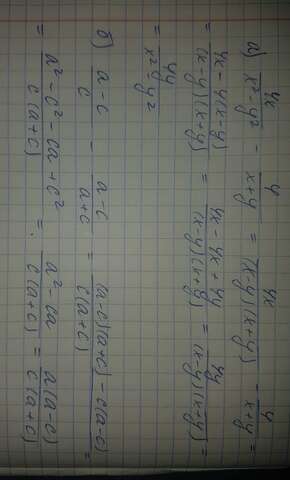 а) 4x/(x²-y²) - 4/(x+y) = 4x/((x-y)(x+y)) - 4/(x+y) =
= (4x-4(x-y))/((x-y)(x+y)) = (4x-4x+4y)/((x-y)(x+y)) = 4y/((x-y)(x+y)) =
= 4y/(x²-y²)
б) (a-c)/c - (a-c)/(a+c) = ((a-c)(a+c)-c(a-c))/(c(a+c)) =
= (a²-c²-ca+c²)/(c(a+c)) = (a²-ca)/(c(a+c)) = a(a-c)/(c(a+c))